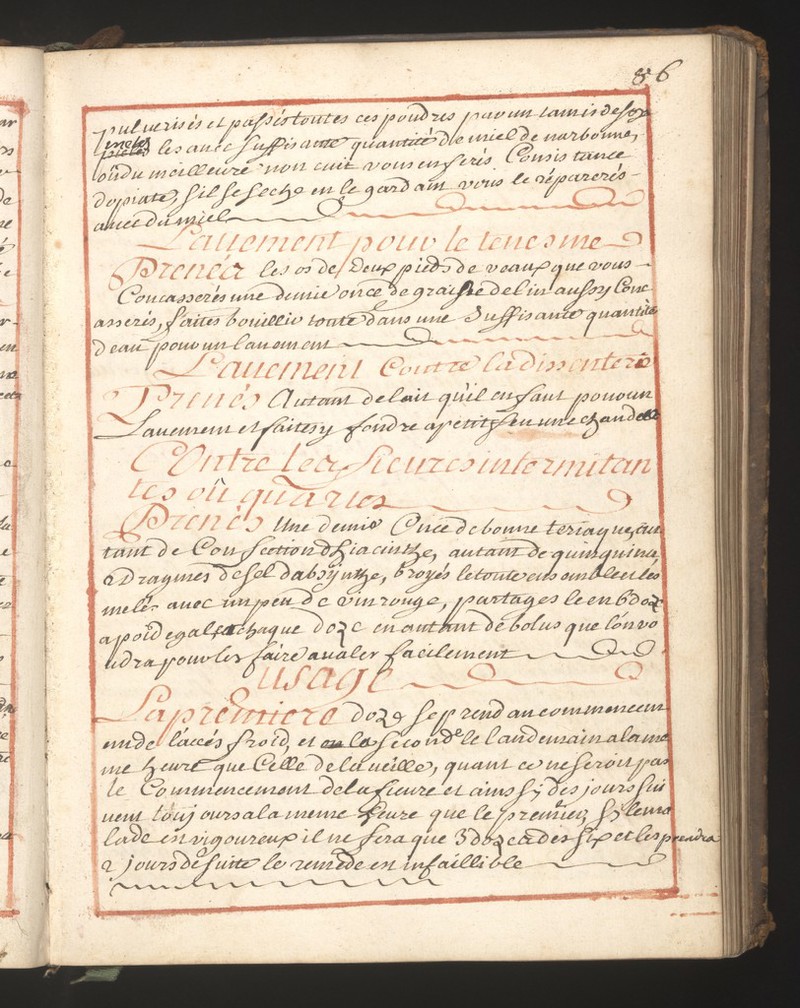 86
pulverisés et passés toutes ces poudres par un tamis de soy
meles les avec suffisante quantité de miel de narbonne,
ou du meilleure non cuit vous en ferés Consistance
dopiate, s'il se seche en le gardant vous le réparerés
avec du miel
Lauement pour le tenesme
Prenéz les os de deux pieds de veaux que vous
Concasserés une demie once de graine de lin aussy Conc
asserés, faites bouillir toute dans une suffisante quantité
d'eau pour un lauement
Lauement Contre la dissenterie
Prenés Autant de lait qu'il en faut pour un
Lauement et faites y fondre a petit feu une chandelle
Contre les fieures intermitan
tes où quartes
Prenés Une demie Once de bonne teriaque, au
tant de Confection d'hiacinthe, autant de quinquina,
2 Dragmes de sel d'absynthe, broyés le toute ensemble et les
melés avec un peu de vin rouge, partages le en 6 doze
a poid egal, chaque doze en autant de bolus que lon vo
udra pour les faire avaler facilement
usage
La premiere doze se prend au commencem
ent de l'accés froid, et la seconde le landemain a la me
me heure que Celle de la veille, quant ce ne seroit pas
le Commencement de la fieure et ainsi des jours sui
uent toujours a la meme heure que le premier, si le ma
lade est vigoureux il ne fera que 3 doze a des six et les prendra
2 jours de suitte le remede est infaillible